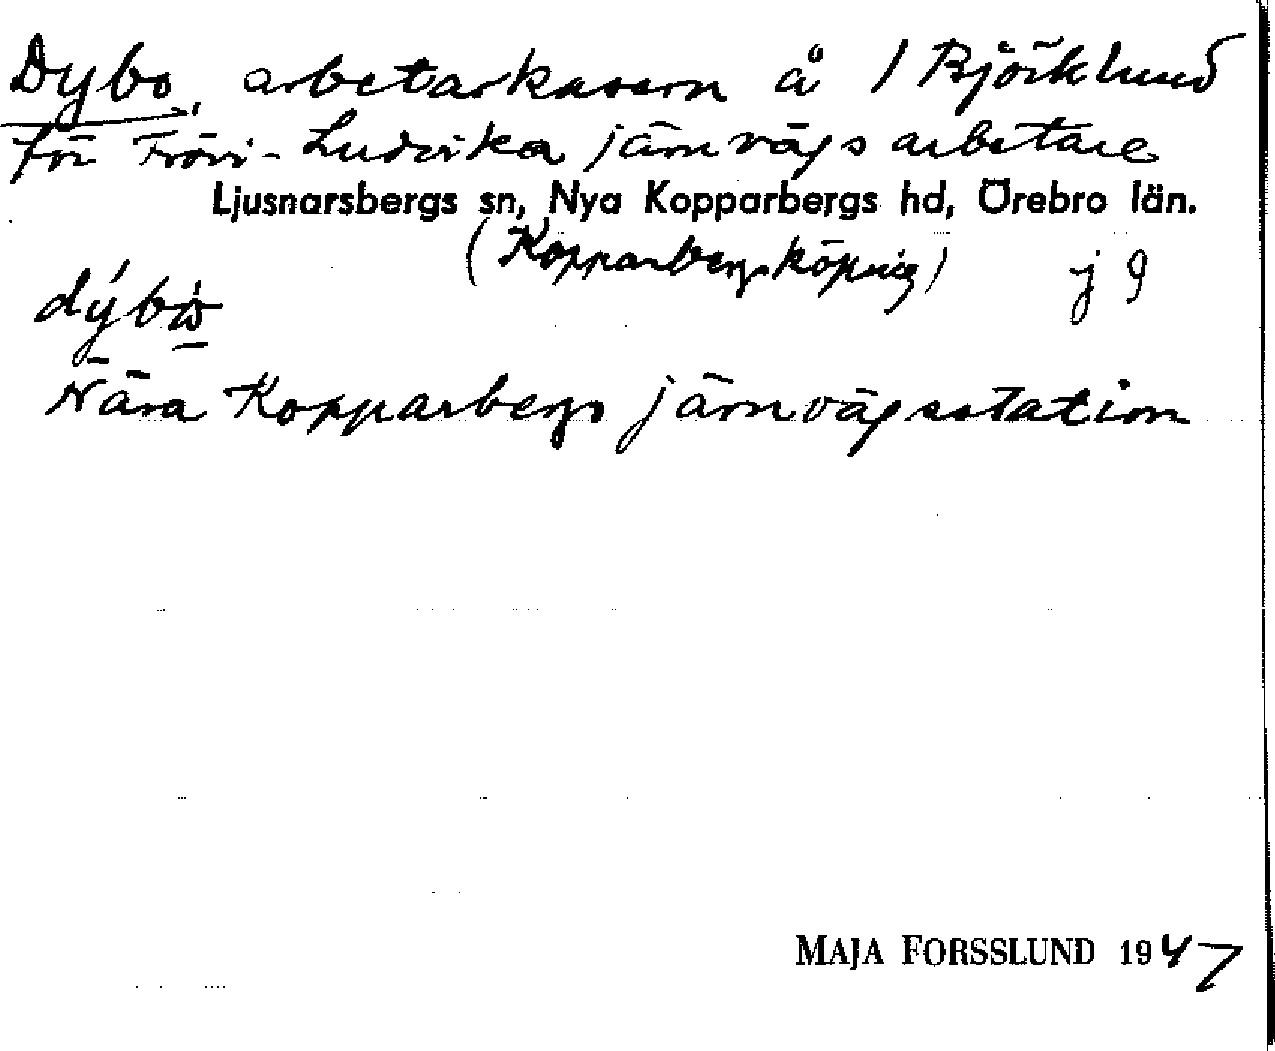 Dybo, arbetarkasern å 1 Björklund
för Frövi-Ludvika järnvägsarbetare
Ljusnarsbergs sn, Nya Kopparbergs hd, Örebro län.
(Kopparbergs köping) j 9
dýbò
Nära Kopparbergs järnvägsstation
MAJA FORSSLUND 1947